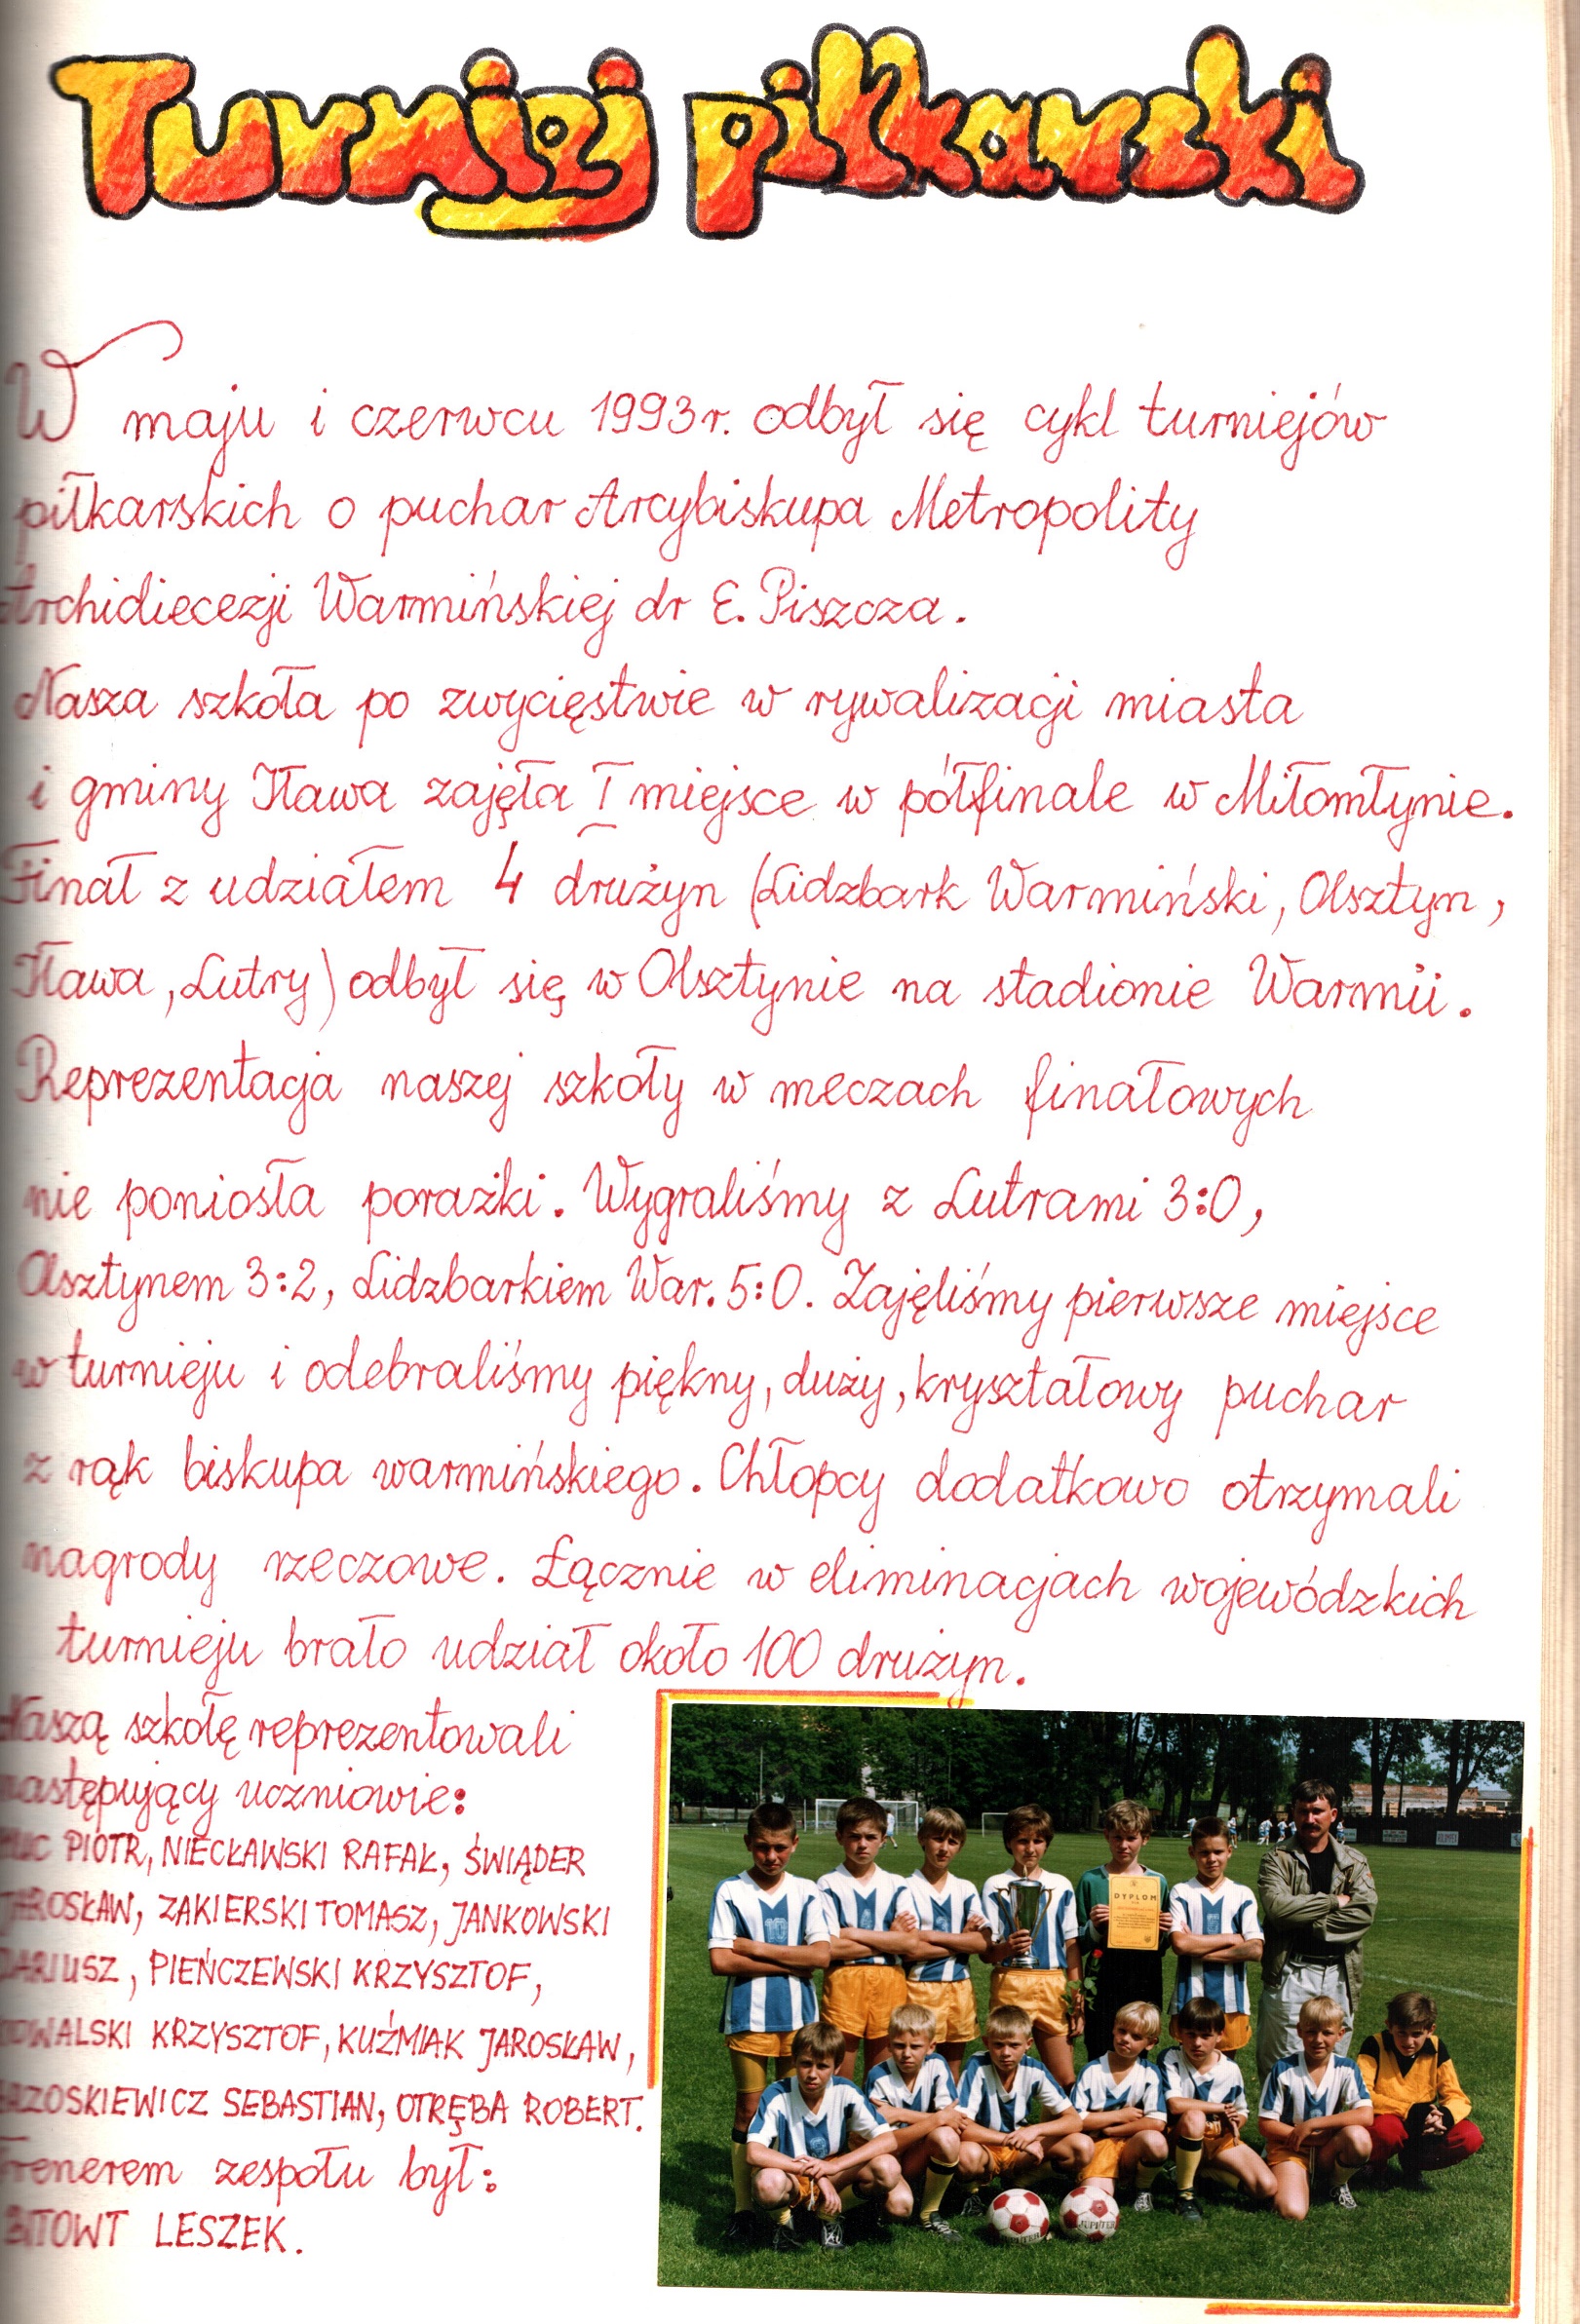 Turniej piłkarski
W maju i czerwcu 1993r. odbył się cykl turniejów
piłkarskich o puchar Arcybiskupa Metropolity
Archidiecezji Warmińskiej dr E. Piszcza.
Nasza szkoła po zwycięstwie w rywalizacji miasta
i gminy Iława zajęła I miejsce w półfinale w Miłomłynie.
Finał z udziałem 4 drużyn (Lidzbark Warmiński, Olsztyn,
Iława, Lutry) odbył się w Olsztynie na stadionie Warmii.
Reprezentacja naszej szkoły w meczach finałowych
nie poniosła porażki. Wygraliśmy z Lutrami 3:0,
Olsztynem 3:2, Lidzbarkiem War. 5:0. Zajęliśmy pierwsze miejsce
w turnieju i odebraliśmy piękny, duży, kryształowy puchar
z rąk biskupa warmińskiego. Chłopcy dodatkowo otrzymali
nagrody rzeczowe. Łącznie w eliminacjach wojewódzkich
turnieju brało udział około 100 drużyn.
Naszą szkołę reprezentowali
następujący uczniowie:
PIOTR, NIECŁAWSKI RAFAŁ, ŚWIĄDER
JAROSŁAW, ZAKIERSKI TOMASZ, JANKOWSKI
DARIUSZ, PIEŃCZEWSKI KRZYSZTOF,
KOWALSKI KRZYSZTOF, KUŹMIAK JAROSŁAW,
SEBASTIAN, OTRĘBA ROBERT.
Trenerem zespołu był:
LESZEK.
DYPLOM
10
JUPITER